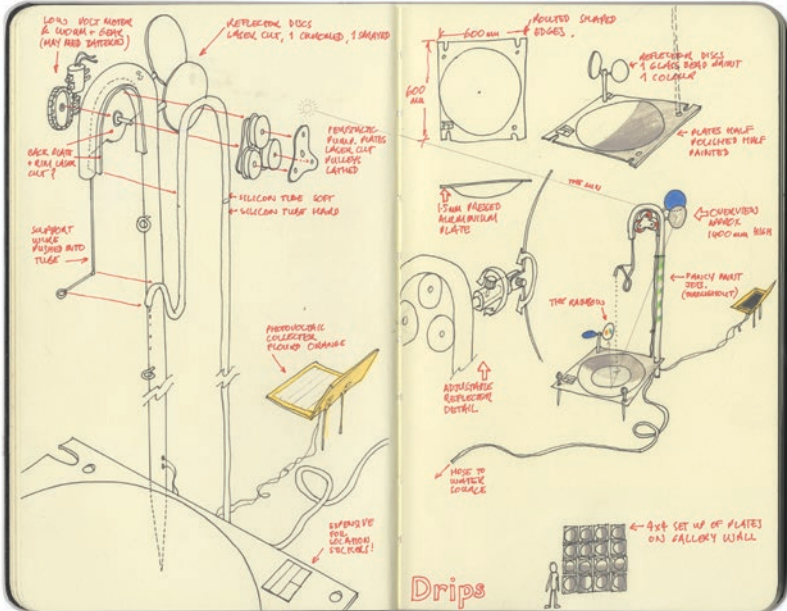 LOW VOLT MOTOR
& WORM + GEAR
(MAY NEED BATTERIES)
REFLECTOR DISCS
LASER CUT, 1 CHROMED, 1 SPRAYED
BACK PLATE
+ RIM LASER
CUT?
PERISTALTIC
PUMP. PLATES
LASER CUT
PULLEYS
LATHED
SILICON TUBE SOFT
SILICON TUBE HARD
SUPPORT
WIRE
PUSHED INTO
TUBE
PHOTOVOLTAIC
COLLECTOR
FLOURO ORANGE
EXPENSIVE
FOR
LOCATION
STICKERS!
600mm
ROUTED SHAPED
EDGES.
600
MM
REFLECTOR DISCS
1 GLASS BEAD PAINT
1 COLOUR
PLATES HALF
POLISHED HALF
PAINTED
1.5mm PRESSED
ALUMINIUM
PLATE
THE SUN
OVERVIEW
APPROX
1400mm HIGH
FANCY PAINT
JOB.
(THROUGHOUT)
THE RAINBOW
ADJUSTABLE
REFLECTOR
DETAIL
HOSE TO
WATER
SOURCE
4x4 SET UP OF PLATES
ON GALLERY WALL
Drips